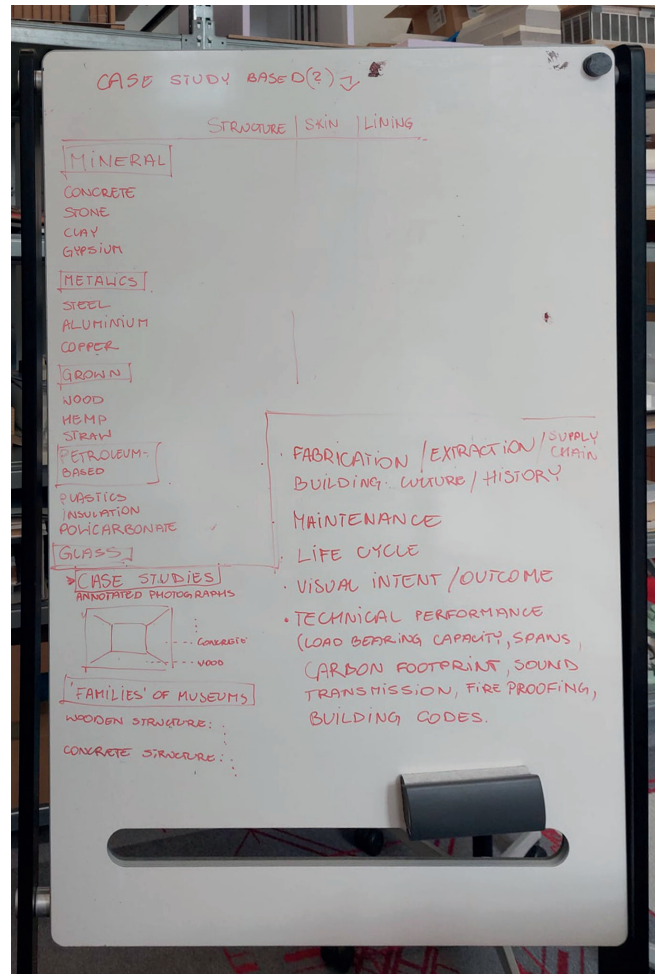 CASE STUDY BASED(?)
STRUCTURE | SKIN | LINING
MINERAL
CONCRETE
STONE
CLAY
GYPSIUM
METALICS
STEEL
ALUMINIUM
COPPER
GROWN
WOOD
HEMP
STRAW
PETROLEUM-
BASED
PLASTICS
INSULATION
POLICARBONATE
GLASS
CASE STUDIES
ANNOTATED PHOTOGRAPHS
CONCRETE
WOOD
'FAMILIES' OF MUSEUMS
WOODEN STRUCTURE:
CONCRETE STRUCTURE:
· FABRICATION / EXTRACTION / SUPPLY CHAIN
BUILDING CULTURE / HISTORY
· MAINTENANCE
· LIFE CYCLE
· VISUAL INTENT / OUTCOME
· TECHNICAL PERFORMANCE
(LOAD BEARING CAPACITY, SPANS,
CARBON FOOTPRINT, SOUND
TRANSMISSION, FIRE PROOFING,
BUILDING CODES.